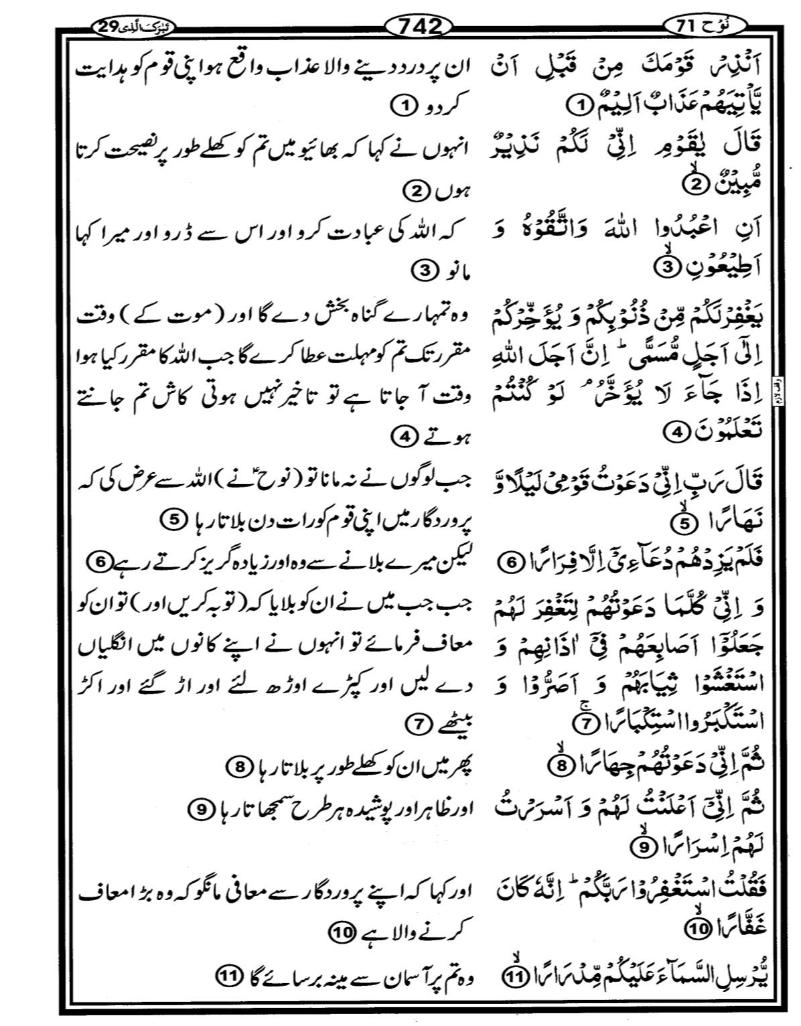 نُوْح 71
742
تَبٰرَكَ الَّذِى 29
اَنْذِرْ قَوْمَكَ مِنْ قَبْلِ اَنْ
يَّاْتِيَهُمْ عَذَابٌ اَلِيْمٌ ①
ان پر درد دینے والا عذاب واقع ہو اپنی قوم کو ہدایت
کر دو ①
قَالَ يٰقَوْمِ اِنِّىْ لَكُمْ نَذِيْرٌ
مُّبِيْنٌۙ ②
انہوں نے کہا کہ بھائیو میں تم کو کھلے طور پر نصیحت کرتا
ہوں ②
اَنِ اعْبُدُوا اللّٰهَ وَاتَّقُوْهُ وَ
اَطِيْعُوْنِۙ ③
کہ اللہ کی عبادت کرو اور اس سے ڈرو اور میرا کہا
مانو ③
يَغْفِرْ لَكُمْ مِّنْ ذُنُوْبِكُمْ وَ يُؤَخِّرْكُمْ
اِلٰٓى اَجَلٍ مُّسَمًّىؕ اِنَّ اَجَلَ اللّٰهِ
اِذَا جَآءَ لَا يُؤَخَّرُۘ لَوْ كُنْتُمْ
تَعْلَمُوْنَ ④
وہ تمہارے گناہ بخش دے گا اور (موت کے) وقت
مقرر تک تم کو مہلت عطا کرے گا جب اللہ کا مقرر کیا ہوا
وقت آ جاتا ہے تو تاخیر نہیں ہوتی کاش تم جانتے
ہوتے ④
وقف لازم
قَالَ رَبِّ اِنِّىْ دَعَوْتُ قَوْمِىْ لَيْلًا وَّ
نَهَارًاۙ ⑤
جب لوگوں نے نہ مانا تو (نوحؑ نے) اللہ سے عرض کی کہ
پروردگار میں اپنی قوم کو رات دن بلاتا رہا ⑤
فَلَمْ يَزِدْهُمْ دُعَآءِىْٓ اِلَّا فِرَارًا ⑥
لیکن میرے بلانے سے وہ اور زیادہ گریز کرتے رہے ⑥
وَ اِنِّىْ كُلَّمَا دَعَوْتُهُمْ لِتَغْفِرَ لَهُمْ
جَعَلُوْٓا اَصَابِعَهُمْ فِىْٓ اٰذَانِهِمْ وَ
اسْتَغْشَوْا ثِيَابَهُمْ وَ اَصَرُّوْا وَ
اسْتَكْبَرُوا اسْتِكْبَارًاۚ ⑦
جب جب میں نے ان کو بلایا کہ (توبہ کریں اور) تو ان کو
معاف فرمائے تو انہوں نے اپنے کانوں میں انگلیاں
دے لیں اور کپڑے اوڑھ لئے اور اڑ گئے اور اکڑ
بیٹھے ⑦
ثُمَّ اِنِّىْ دَعَوْتُهُمْ جِهَارًاۙ ⑧
پھر میں ان کو کھلے طور پر بلاتا رہا ⑧
ثُمَّ اِنِّىْٓ اَعْلَنْتُ لَهُمْ وَ اَسْرَرْتُ
لَهُمْ اِسْرَارًاۙ ⑨
اور ظاہر اور پوشیدہ ہر طرح سمجھاتا رہا ⑨
فَقُلْتُ اسْتَغْفِرُوْا رَبَّكُمْؕ اِنَّهٗ كَانَ
غَفَّارًاۙ ⑩
اور کہا کہ اپنے پروردگار سے معافی مانگو کہ وہ بڑا معاف
کرنے والا ہے ⑩
يُّرْسِلِ السَّمَآءَ عَلَيْكُمْ مِّدْرَارًاۙ ⑪
وہ تم پر آسمان سے مینہ برسائے گا ⑪